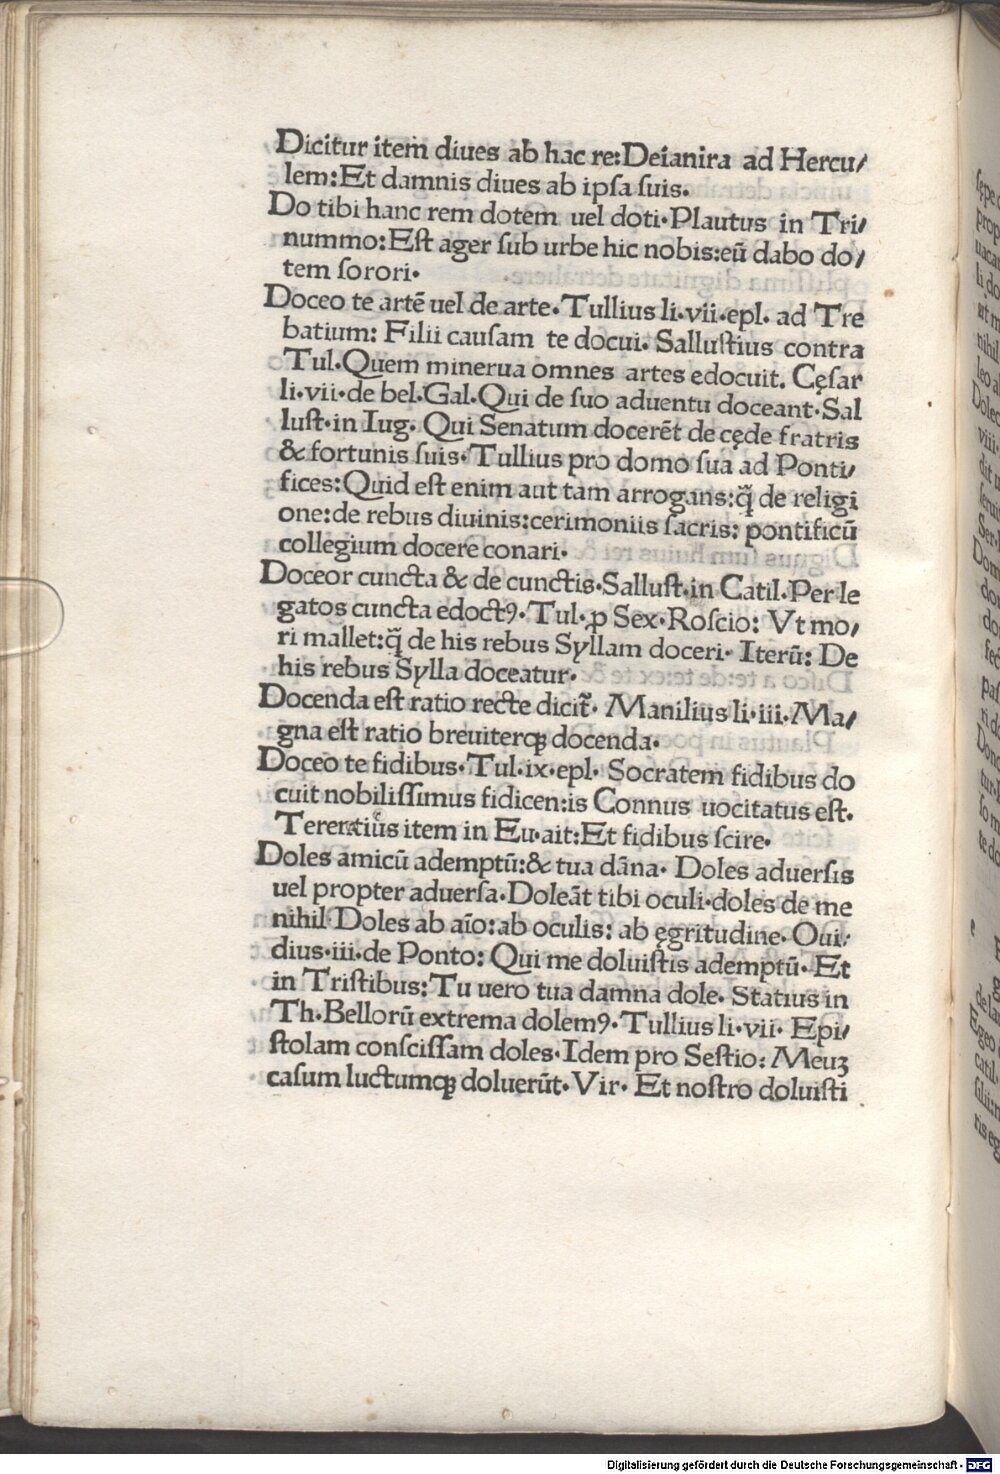 Dicitur item diues ab hac re:Deianira ad Hercu/
lem:Et damnis diues ab ipſa ſuis.
Do tibi hanc rem dotem uel doti·Plautus in Tri/
nummo:Eſt ager ſub urbe hic nobis:eũ dabo do/
tem ſorori·
Doceo te artẽ uel de arte·Tullius li·vii·epl· ad Tre
batium: Filii cauſam te docui. Salluſtius contra
Tul·Quem minerua omnes artes edocuit. Cęſar
li·vii·de bel·Gal·Qui de ſuo aduentu doceant·Sal
luſt·in Iug· Qui Senatum docerẽt de cęde fratris
& fortunis ſuis·Tullius pro domo ſua ad Ponti/
fices:Quid eſt enim aut tam arrogans:q̃ de religi
one:de rebus diuinis:cerimoniis ſacris: pontificũ
collegium docere conari·
Doceor cuncta & de cunctis·Salluſt·in Catil·Per le
gatos cuncta edoctꝰ·Tul·ꝓ Sex·Roſcio: Vt mo/
ri mallet:q̃ de his rebus Syllam doceri· Iterũ: De
his rebus Sylla doceatur·
Docenda eſt ratio recte dicit᷑· Manilius li·iii·Ma/
gna eſt ratio breuiterqꝫ docenda·
Doceo te fidibus·Tul·ix·epl· Socratem fidibus do
cuit nobiliſſimus fidicen:is Connus uocitatus eſt·
Terentius item in Eu·ait:Et fidibus ſcire·
Doles amicũ ademptũ:& tua dãna· Doles aduerſis
uel propter aduerſa·Doleãt tibi oculi·doles de me
nihil·Doles ab aĩo:ab oculis: ab ęgritudine· Oui/
dius·iii·de Ponto: Qui me doluiſtis ademptũ· Et
in Triſtibus:Tu uero tua damna dole· Statius in
Th·Bellorũ extrema dolemꝰ·Tullius li·vii· Epi/
ſtolam conſciſſam doles·Idem pro Seſtio: Meuꝫ
caſum luctumqꝫ doluerũt·Vir· Et noſtro doluiſti
Digitalisierung gefördert durch die Deutsche Forschungsgemeinschaft · DFG